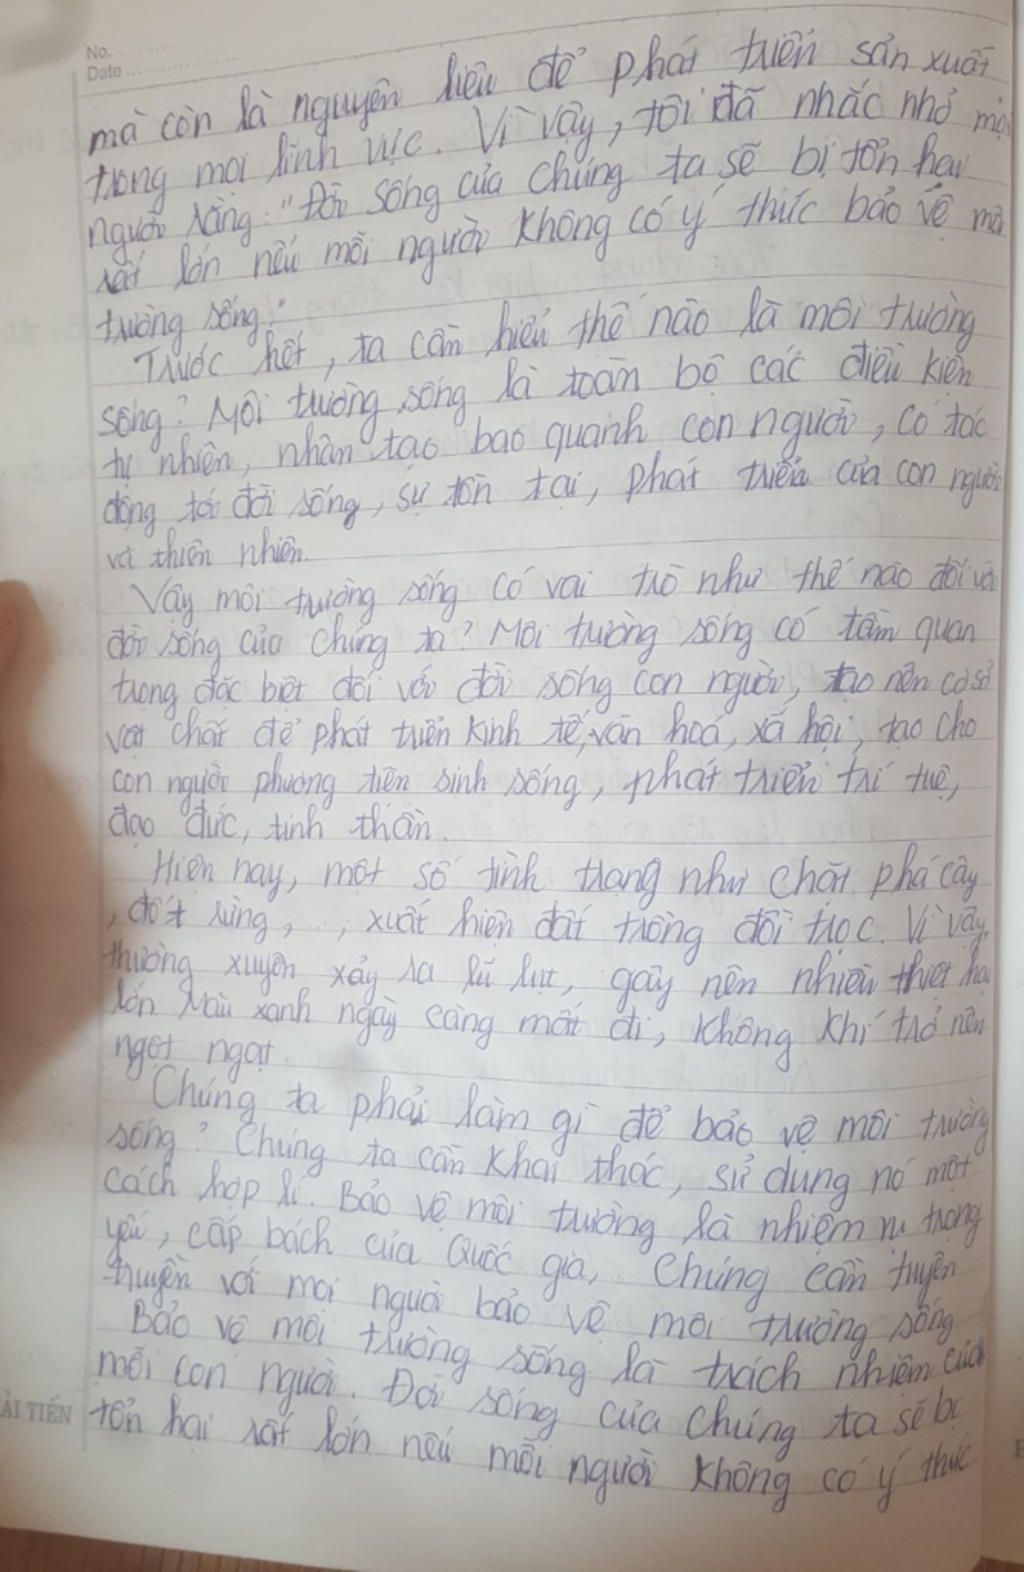 No.
Date
mà còn là nguyên liệu để phát triển sản xuất
trong mọi lĩnh vực. Vì vậy, tôi đã nhắc nhở mọi
người rằng: "Đời sống của chúng ta sẽ bị tổn hại
rất lớn nếu mỗi người không có ý thức bảo vệ môi
trường sống."
Trước hết, ta cần hiểu thế nào là môi trường
sống? Môi trường sống là toàn bộ các điều kiện
tự nhiên, nhân tạo bao quanh con người, có tác
động tới đời sống, sự tồn tại, phát triển của con người
và thiên nhiên.
Vậy môi trường sống có vai trò như thế nào đối với
đời sống của chúng ta? Môi trường sống có tầm quan
trong đặc biệt đối với đời sống con người, tạo nên cơ sở
vật chất để phát triển kinh tế, văn hoá, xã hội, tạo cho
con người phương tiện sinh sống, phát triển trí tuệ,
đạo đức, tinh thần.
Hiện nay, một số tình trạng như chặt phá cây
, đốt rừng, ..., xuất hiện đất trống đồi trọc. Vì vậy,
thường xuyên xảy ra lũ lụt, gây nên nhiều thiệt hại
lớn. Màu xanh ngày càng mất đi, không khí trở nên
ngột ngạt.
Chúng ta phải làm gì để bảo vệ môi trường
sống? Chúng ta cần khai thác, sử dụng nó một
cách hợp lí. Bảo vệ môi trường là nhiệm vụ trọng
yếu, cấp bách của Quốc gia, Chúng cần tuyên
truyền với mọi người bảo vệ môi trường sống
Bảo vệ môi trường sống là trách nhiệm của
mỗi con người. Đời sống của chúng ta sẽ bị
tổn hại rất lớn nếu mỗi người không có ý thức
ẢI TIẾN